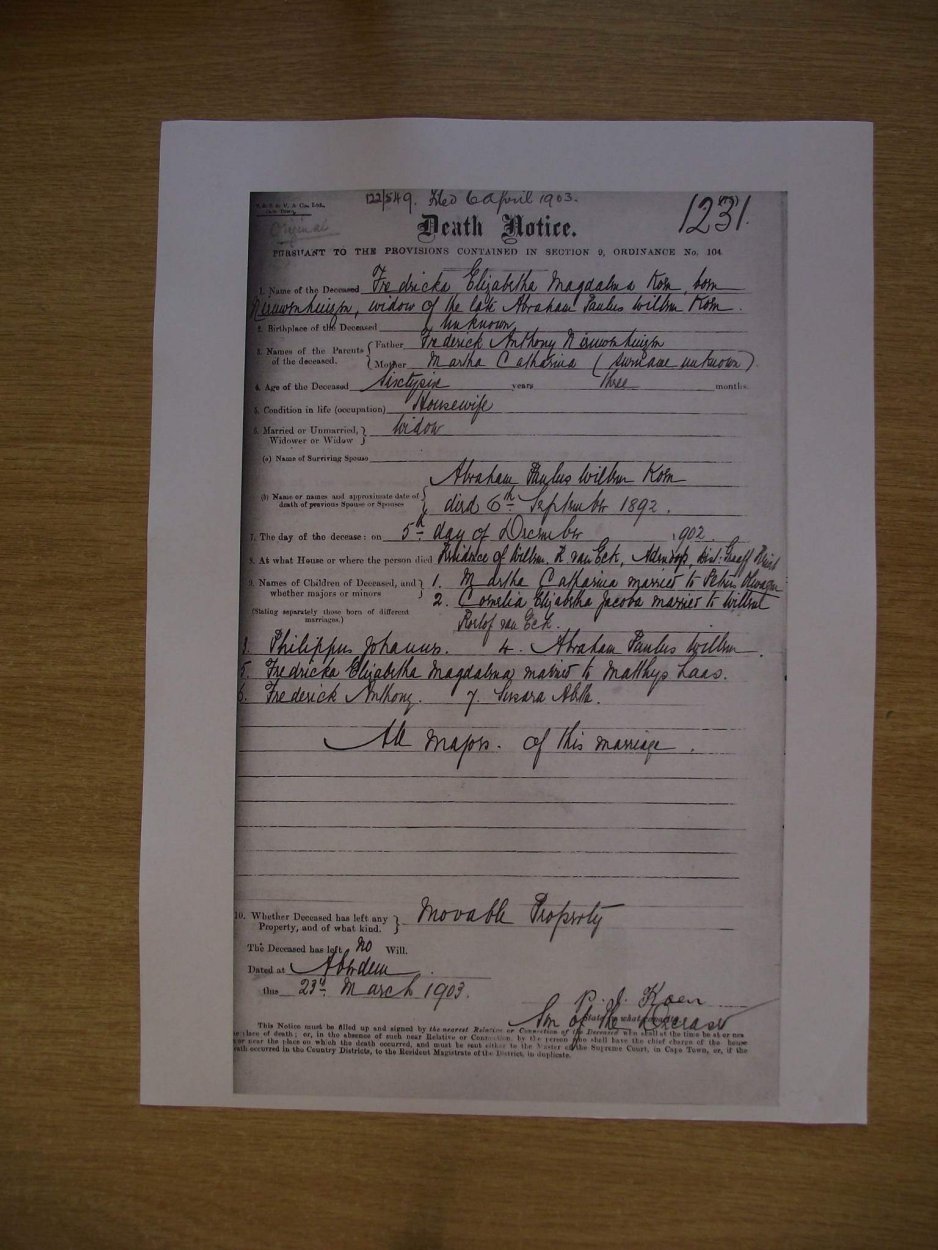 122/549. Filed 6 April 1903.
1231.
Cape Town.
Original
Death Notice.
PURSUANT TO THE PROVISIONS CONTAINED IN SECTION 9, ORDINANCE No. 104.
1. Name of the Deceased Fredricka Elizabetha Magdalena Koen, born
Nieuwenhuizen, widow of the late Abraham Paulus Willem Koen.
2. Birthplace of the Deceased Unknown
3. Names of the Parents of the deceased. { Father Frederick Anthony Nieuwenhuizen
Mother Martha Catharina (surname unknown)
4. Age of the Deceased Sixtysix years three months.
5. Condition in life (occupation) Housewife
6. Married or Unmarried, Widower or Widow } Widow
(a) Name of Surviving Spouse
(b) Name or names and approximate date of death of previous Spouse or Spouses { Abraham Paulus Willem Koen
died 6th September 1892.
7. The day of the decease: on 5th day of December 1902
8. At what House or where the person died Residence of Willem R van Eck, Adendorp, dist. Graaff Reinet
9. Names of Children of Deceased, and whether majors or minors } 1. Martha Catharina married to Petrus
(Stating separately those born of different marriages.) 2. Cornelia Elizabetha Jacoba married to Willem
Roelof van Eck.
3. Philippus Johannes. 4. Abraham Paulus Willem.
5. Fredricka Elizabetha Magdalena married to Matthys Laas.
6. Frederick Anthony. 7. Susara Aletta.
All majors. of this marriage.
10. Whether Deceased has left any Property, and of what kind. } Movable Property
The Deceased has left no Will.
Dated at Aberdeen.
this 23rd March 1903.
P. J. Koen
Son of the Deceased
This Notice must be filled up and signed by the nearest Relative or Connection of the Deceased who shall at the time be at or near
the place of death; or, in the absence of such near Relative or Connection, by the person who shall have the chief charge of the house
or near the place on which the death occurred, and must be sent either to the Master of the Supreme Court, in Cape Town, or, if the
death occurred in the Country Districts, to the Resident Magistrate of the District, in duplicate.